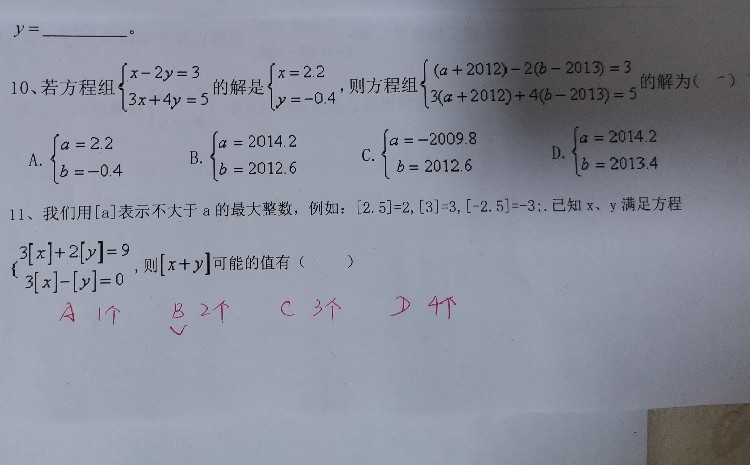 y=________。
10、若方程组{x-2y=3 3x+4y=5 的解是{x=2.2 y=-0.4 ,则方程组{(a+2012)-2(b-2013)=3 3(a+2012)+4(b-2013)=5 的解为( )
A. {a=2.2 b=-0.4 B. {a=2014.2 b=2012.6 C. {a=-2009.8 b=2012.6 D. {a=2014.2 b=2013.4
11、我们用[a]表示不大于 a 的最大整数，例如：[2.5]=2,[3]=3,[-2.5]=-3;.已知 x、y 满足方程
{3[x]+2[y]=9 3[x]-[y]=0 ,则[x+y]可能的值有（ ）
A 1个 B 2个 C 3个 D 4个